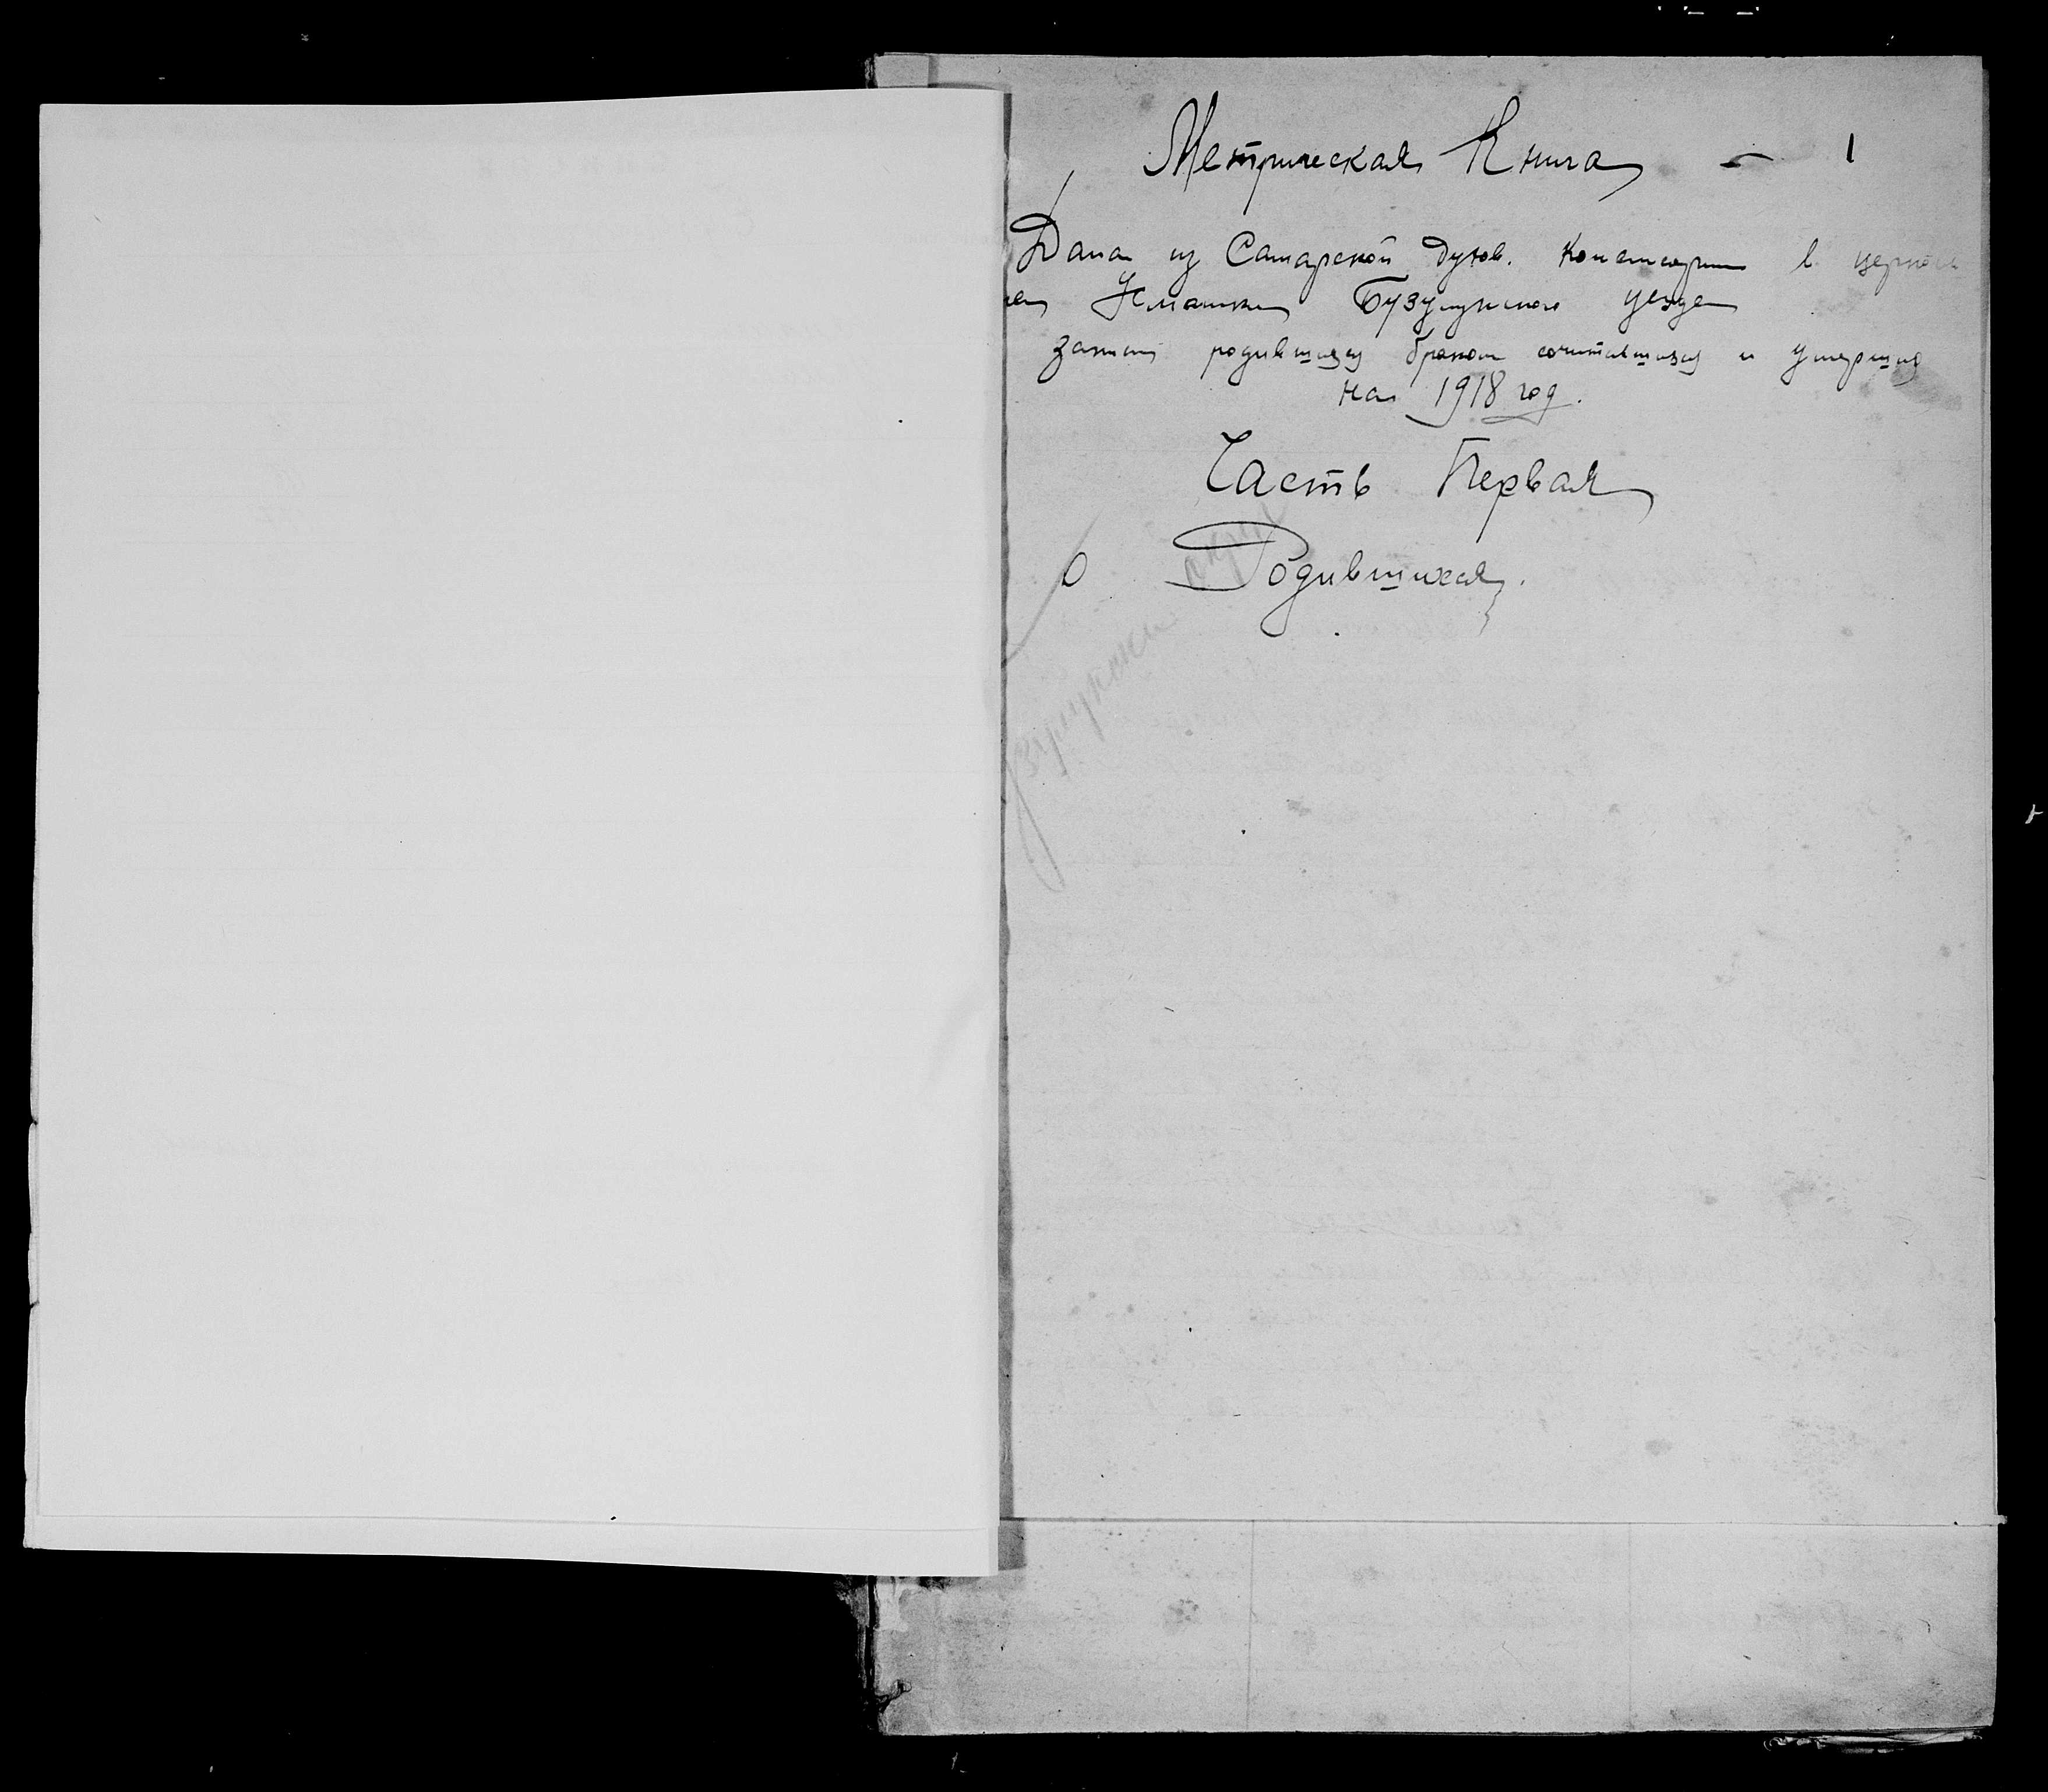 Метрическая Книга – 1
Дана из Самарской духов. консистории в церковь
Бузулукского уезда
записи родившихся браком сочитавшихся и умерших
на 1918 год.
Часть Первая
О Родившихся.